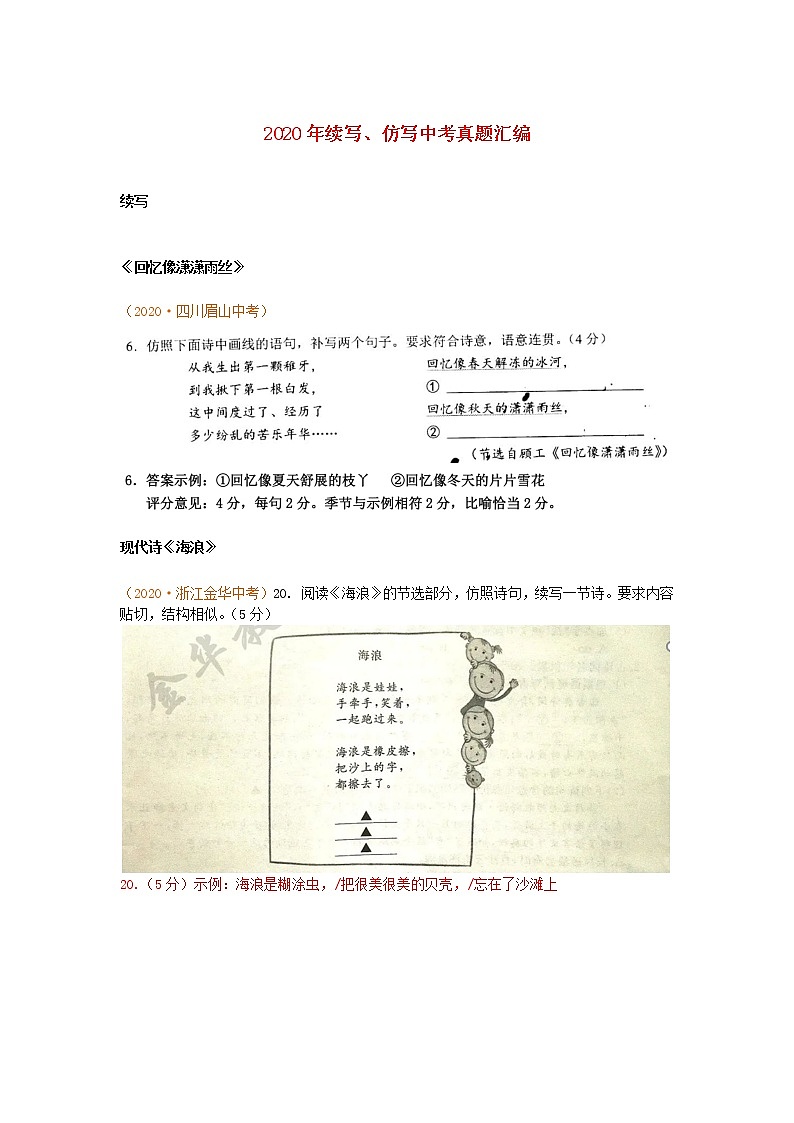 2020年续写、仿写中考真题汇编
续写
《回忆像潇潇雨丝》
（2020·四川眉山中考）
6．仿照下面诗中画线的语句，补写两个句子。要求符合诗意，语意连贯。（4分）
从我生出第一颗稚牙，
到我揪下第一根白发，
这中间度过了、经历了
多少纷乱的苦乐年华……
回忆像春天解冻的冰河，
①
回忆像秋天的潇潇雨丝，
②
（节选自顾工《回忆像潇潇雨丝》）
6．答案示例：①回忆像夏天舒展的枝丫 ②回忆像冬天的片片雪花
评分意见：4分，每句2分。季节与示例相符2分，比喻恰当2分。
现代诗《海浪》
（2020·浙江金华中考）20．阅读《海浪》的节选部分，仿照诗句，续写一节诗。要求内容
贴切，结构相似。（5分）
金华
海浪
海浪是娃娃，
手牵手，笑着，
一起跑过来。
海浪是橡皮擦，
把沙上的字，
都擦去了。
▲
▲
▲
20．（5分）示例：海浪是糊涂虫，/把很美很美的贝壳，/忘在了沙滩上